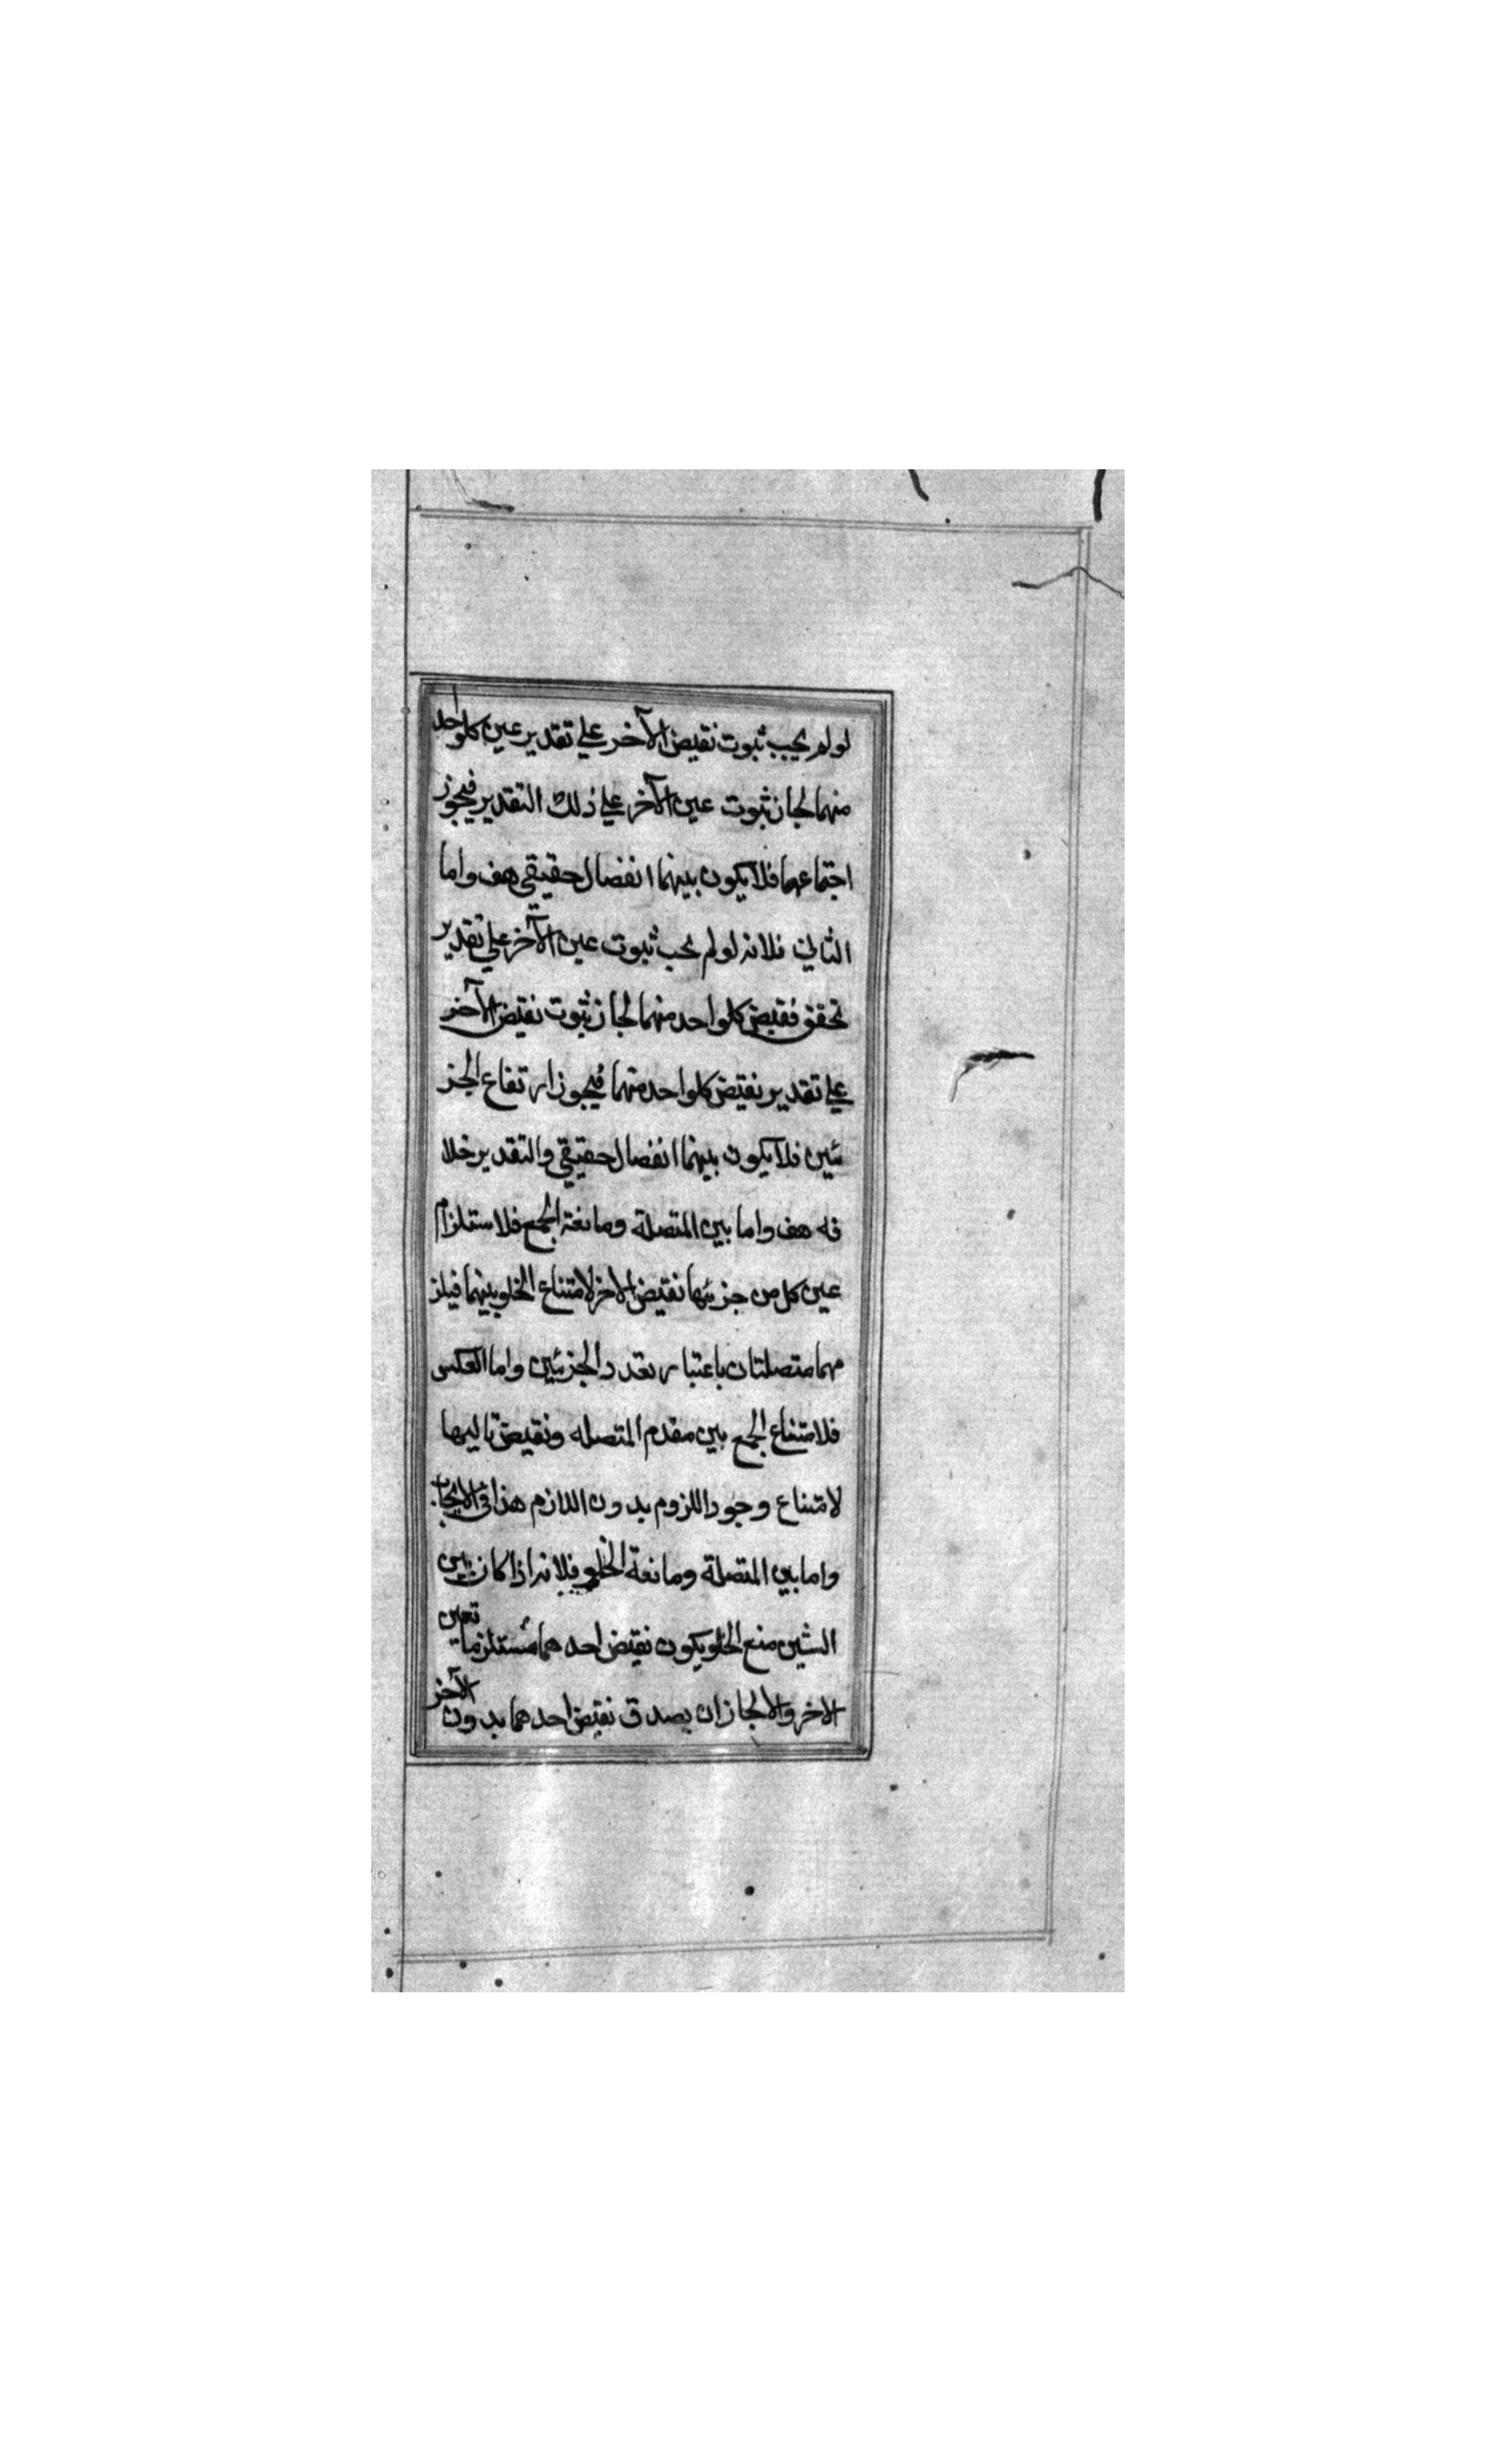 لو لم يجب ثبوت نقيض الآخر على تقدير عين كلواحد
منهما لجاز ثبوت عين الآخر على ذلك التقدير فيجوز
اجتماعهما فلا يكون بينهما انفصال حقيقي هف واما
الثاني فلانه لو لم يجب ثبوت عين الآخر على تقدير
تحقق نقيض كلواحد منهما لجاز ثبوت نقيض الآخر
على تقدير نقيض كلواحد منهما فيجوز ارتفاع الجز
ئين فلا يكون بينهما انفصال حقيقي والتقدير خلا
فه هف واما بين المتصلة ومانعة الجمع فلاستلزام
عين كل من جزئيها نقيض الاخر لامتناع الخلو بينهما فيلز
مهما متصلتان باعتبار تعدد الجزئين واما العكس
فلامتناع الجمع بين مقدم المتصله ونقيض تاليها
لامتناع وجود اللزوم بدون اللازم هذا في الايجاب
واما بين المتصلة ومانعة الخلو فلانه اذا كان بين
الشين منع الخلو يكون نقيض احدهما مستلزما لعين
الاخر والا لجاز ان يصدق نقيض احدهما بدون الآخر